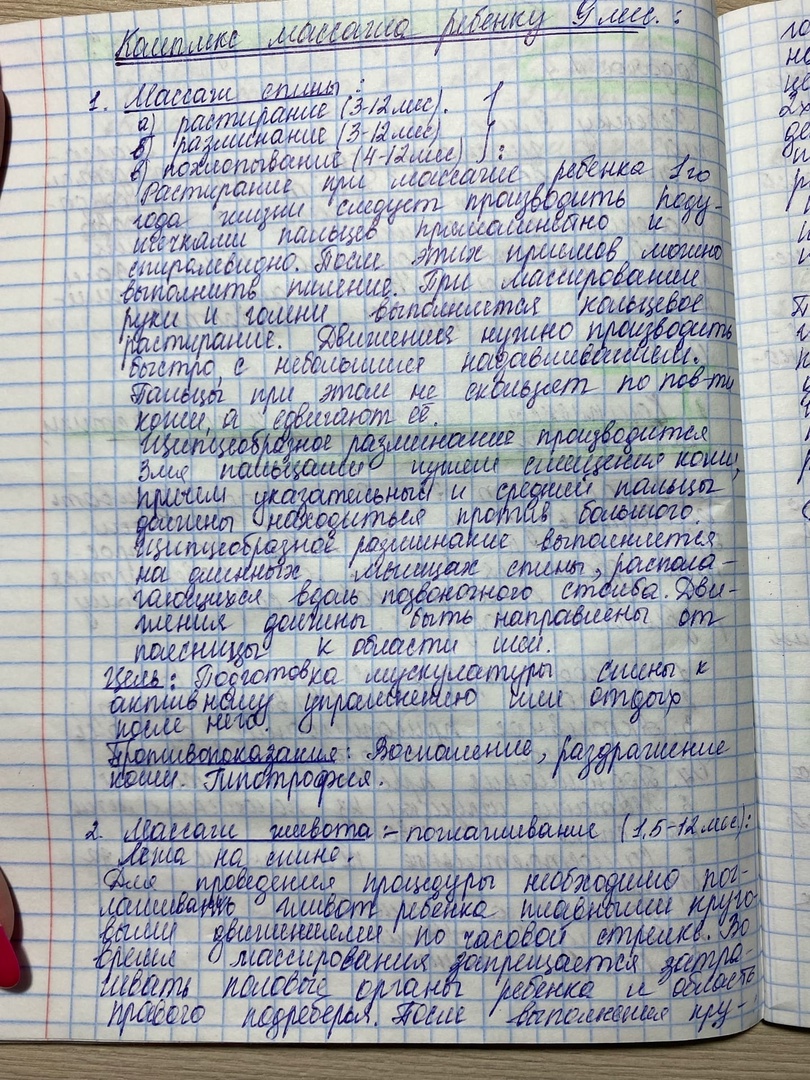 Комплекс массажа ребенку 9 мес.:
1. Массаж спины:
а) растирание (3-12 мес).
б) разминание (3-12 мес)
в) похлопывание (4-12 мес) :
Растирание при массаже ребенка 1го
года жизни следует производить поду-
шечками пальцев прямолинейно и
спиралевидно. После этих приемов можно
выполнить пиление. При массировании
руки и голени выполняется кольцевое
растирание. Движения нужно производить
быстро, с небольшим надавливанием.
Пальцы при этом не скользят по пов-ти
кожи, а сдвигают её.
Щипцеобразное разминание производится
3мя пальцами путем смещения кожи,
причем указательный и средний пальцы
должены находиться против большого.
Щипцеобразное разминание выполняется
на длинных мышцах спины, распола-
гающихся вдоль позвоночного столба. Дви-
жения должны быть направлены от
поясницы к области шеи.
Цель: Подготовка мускулатуры спины к
активному упражнению или отдых
после него.
Противопоказания: Воспаление, раздражение
кожи. Гипотрофия.
2. Массаж живота: - поглаживание (1,5-12 мес):
Лежа на спине.
Для проведения процедуры необходимо пог-
лаживать живот ребенка плавными круго-
выми движениями по часовой стрелке. Во
время массирования запрещается затра-
гивать половые органы ребенка и область
правого подреберья. После выполнения кру-